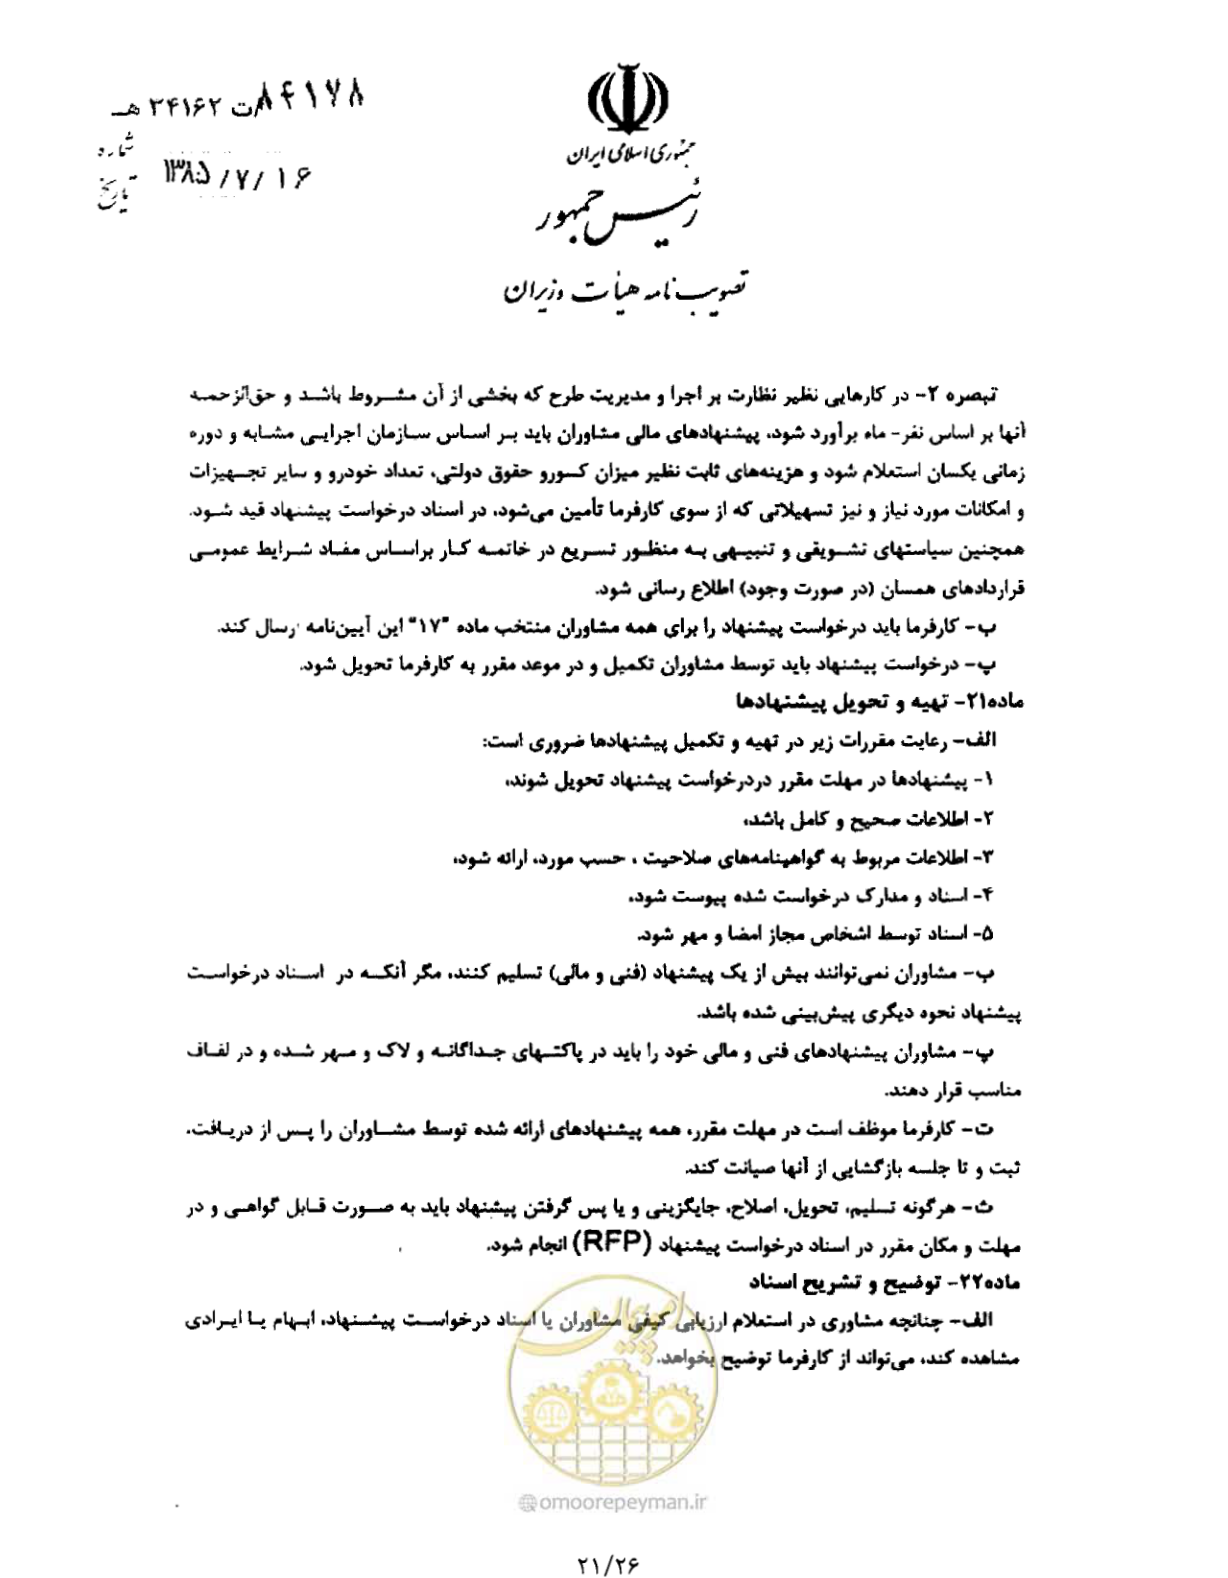 ۸۴۱۷۸/ت ۳۴۱۶۲ هـ
شماره
۱۳۸۵/۷/۱۶
تاریخ
جمهوری اسلامی ایران
رئیس جمهور
تصویب نامه هیأت وزیران
تبصره ۲- در کارهایی نظیر نظارت بر اجرا و مدیریت طرح که بخشی از آن مشروط باشد و حق‌الزحمه
آنها بر اساس نفر- ماه برآورد شود، پیشنهادهای مالی مشاوران باید بر اساس سازمان اجرایی مشابه و دوره
زمانی یکسان استعلام شود و هزینه‌های ثابت نظیر میزان کسورو حقوق دولتی، تعداد خودرو و سایر تجهیزات
و امکانات مورد نیاز و نیز تسهیلاتی که از سوی کارفرما تأمین می‌شود، در اسناد درخواست پیشنهاد قید شود.
همچنین سیاستهای تشویقی و تنبیهی به منظور تسریع در خاتمه کار براساس مفاد شرایط عمومی
قراردادهای همسان (در صورت وجود) اطلاع رسانی شود.
ب- کارفرما باید درخواست پیشنهاد را برای همه مشاوران منتخب ماده "۱۷" این آیین‌نامه ارسال کند.
پ- درخواست پیشنهاد باید توسط مشاوران تکمیل و در موعد مقرر به کارفرما تحویل شود.
ماده۲۱- تهیه و تحویل پیشنهادها
الف- رعایت مقررات زیر در تهیه و تکمیل پیشنهادها ضروری است:
۱- پیشنهادها در مهلت مقرر دردرخواست پیشنهاد تحویل شوند،
۲- اطلاعات صحیح و کامل باشد،
۳- اطلاعات مربوط به گواهینامه‌های صلاحیت ، حسب مورد، ارائه شود،
۴- اسناد و مدارک درخواست شده پیوست شود،
۵- اسناد توسط اشخاص مجاز امضا و مهر شود.
ب- مشاوران نمی‌توانند بیش از یک پیشنهاد (فنی و مالی) تسلیم کنند، مگر آنکه در اسناد درخواست
پیشنهاد نحوه دیگری پیش‌بینی شده باشد.
پ- مشاوران پیشنهادهای فنی و مالی خود را باید در پاکتهای جداگانه و لاک و مهر شده و در لفاف
مناسب قرار دهند.
ت- کارفرما موظف است در مهلت مقرر، همه پیشنهادهای ارائه شده توسط مشاوران را پس از دریافت،
ثبت و تا جلسه بازگشایی از آنها صیانت کند.
ث- هرگونه تسلیم، تحویل، اصلاح، جایگزینی و یا پس گرفتن پیشنهاد باید به صورت قابل گواهی و در
مهلت و مکان مقرر در اسناد درخواست پیشنهاد (RFP) انجام شود.
ماده۲۲- توضیح و تشریح اسناد
الف- چنانچه مشاوری در استعلام ارزیابی کیفی مشاوران یا اسناد درخواست پیشنهاد، ابهام یا ایرادی
مشاهده کند، می‌تواند از کارفرما توضیح بخواهد.
امور پیمان
omoorepeyman.ir
۲۱/۲۶